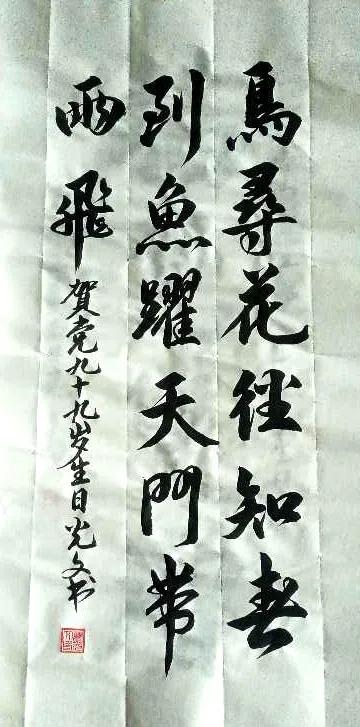 鳥尋花徑知春
到魚躍天門帶
雨飛
賀党九十九岁生日光文书